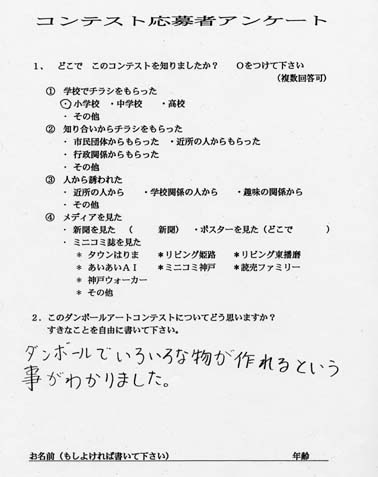 コンテスト応募者アンケート
1、 どこで このコンテストを知りましたか? Oをつけて下さい
(複数回答可)
① 学校でチラシをもらった
・小学校 ・中学校 ・高校
・その他
② 知り合いからチラシをもらった
・市民団体からもらった ・近所の人からもらった
・行政関係からもらった
・その他
③ 人から誘われた
・近所の人から ・学校関係の人から ・趣味の関係から
・その他
④ メディアを見た
・新聞を見た ( 新聞) ・ポスターを見た(どこで )
・ミニコミ誌を見た
* タウンはりま *リビング姫路 *リビング東播磨
* あいあいAI *ミニコミ神戸 *読売ファミリー
* 神戸ウォーカー
* その他
2.このダンボールアートコンテストについてどう思いますか?
すきなことを自由に書いて下さい。
ダンボールでいろいろな物が作れるという
事がわかりました。
お名前(もしよければ書いて下さい) 年齢